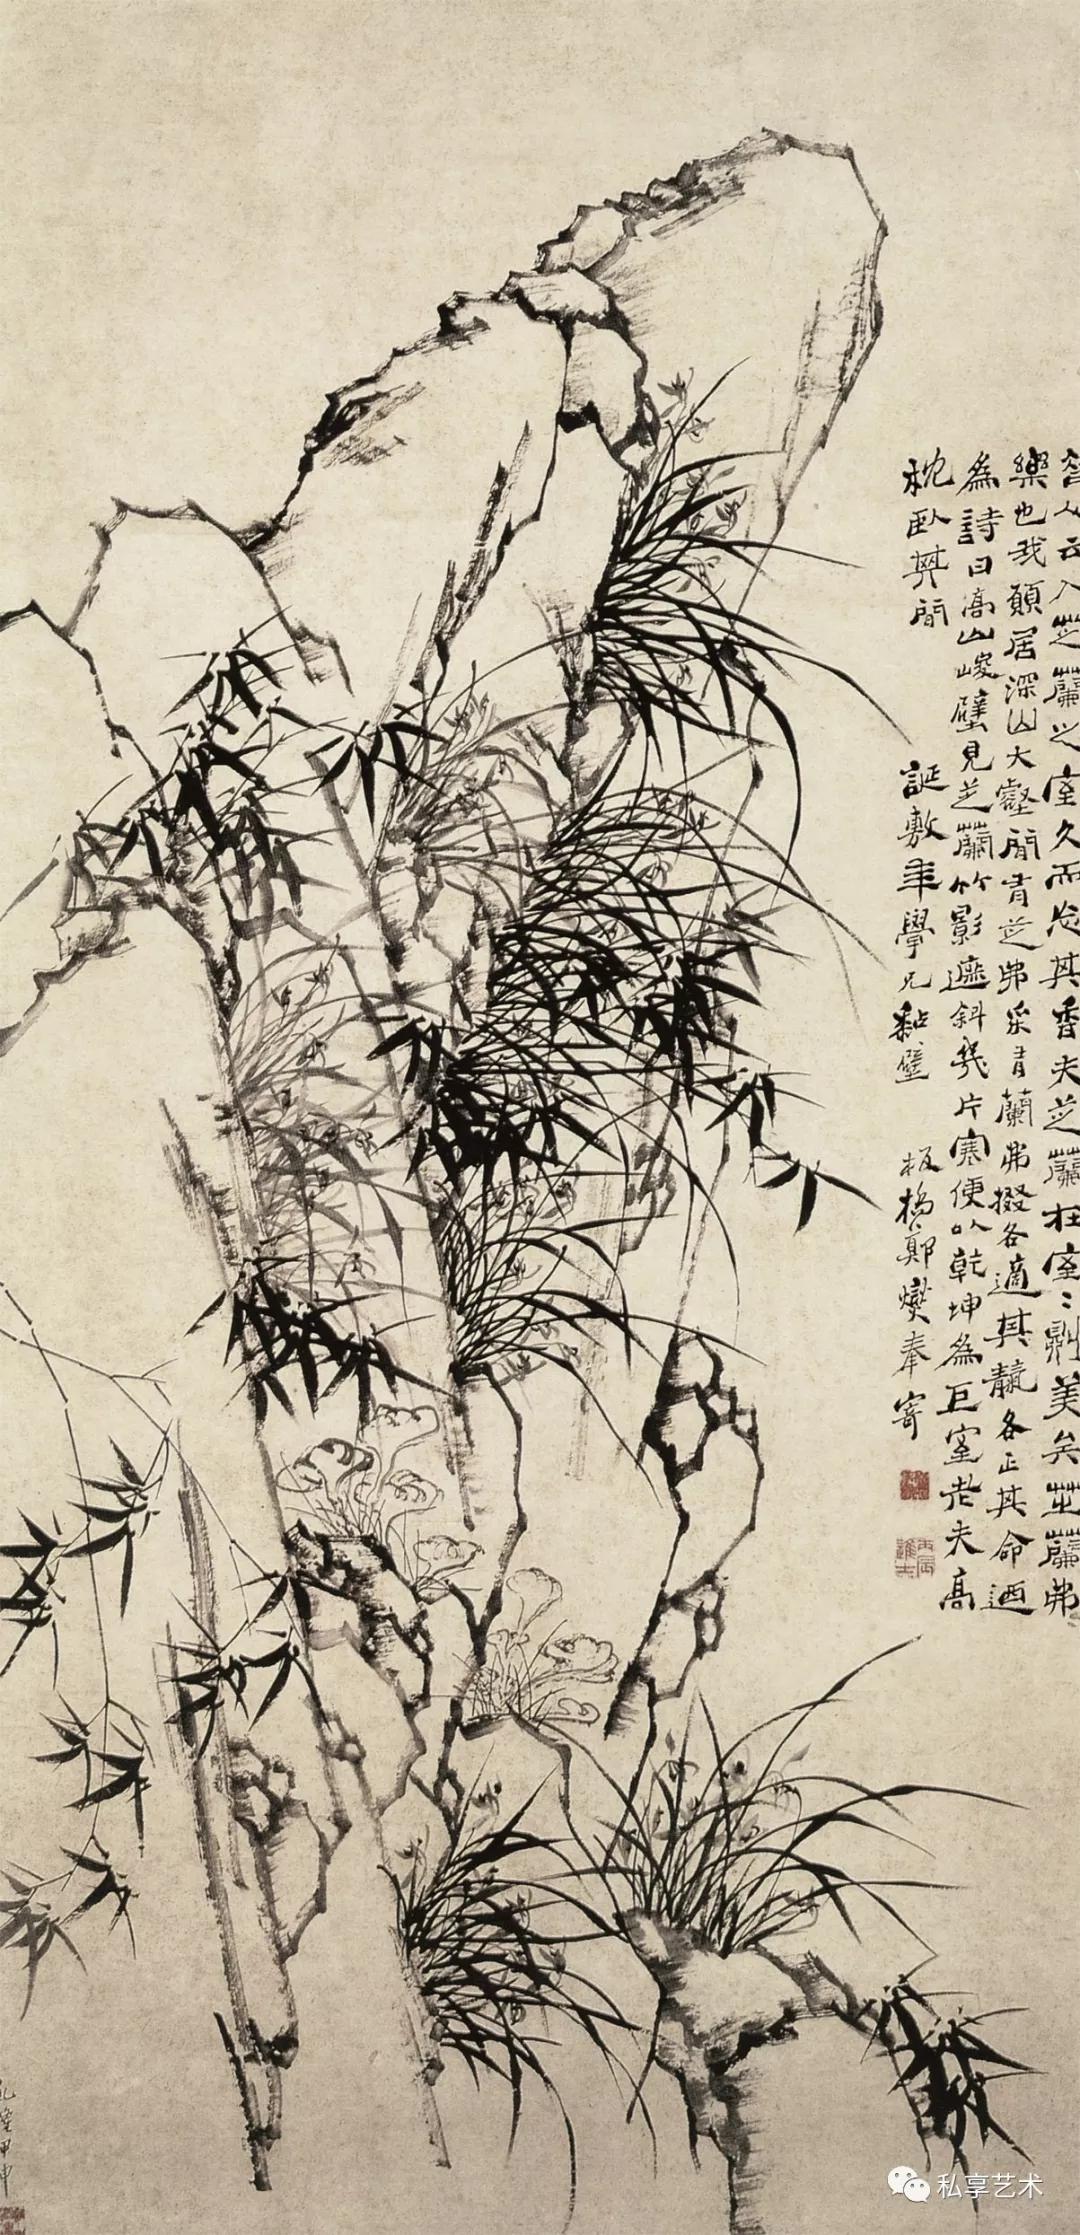 昔人云入芝蘭之室久而忘其香夫芝蘭在室室則美矣芝蘭弗
樂也我願居深山大壑間有芝弗采有蘭弗掇各適其天各正其命迺
為詩曰高山峻壁見芝蘭竹影遮斜幾片寒便以乾坤為巨室老夫高
枕臥其間
誕敷年學兄黏壁
板橋鄭燮奉寄
丙辰進士
乾隆甲申
私享艺术